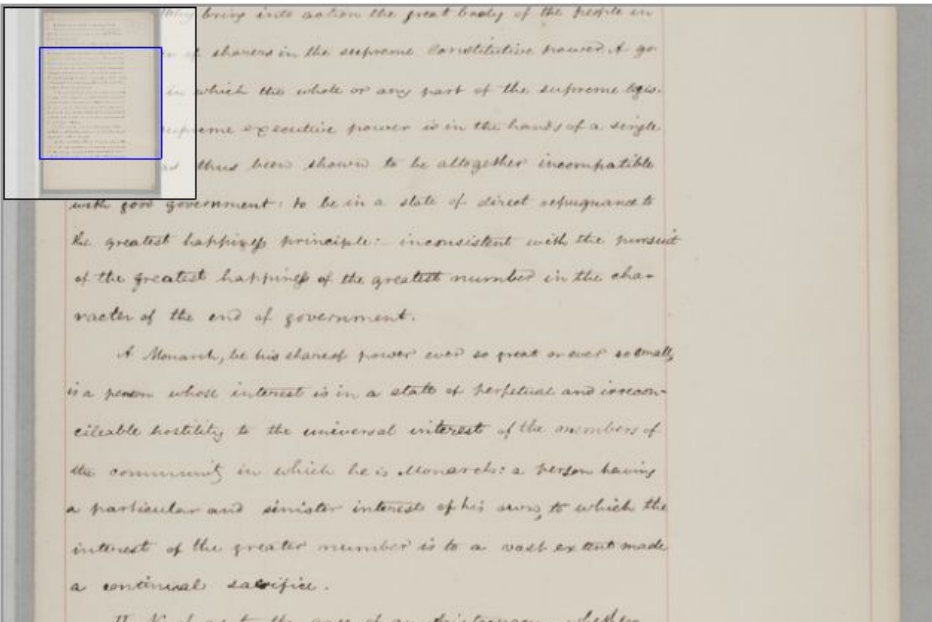 bring into action the great body of the people in
of sharers in the supreme Constitutive power. A go
in which the whole or any part of the supreme legis-
supreme executive power is in the hands of a single
as thus been shown to be altogether incompatible
with good government: to be in a state of direct repugnance to
the greatest happiness principle:- inconsistent with the pursuit
of the greatest happiness of the greatest number in the cha-
racter of the end of government.
A Monarch, be his share of power ever so great or ever so small,
is a person whose interest is in a state of perpetual and irrecon-
cileable hostility to the universal interest of the members of
the community in which he is Monarch: a person having
a particular and sinister interest of his own, to which the
interest of the greater number is to a vast extent made
a continual sacrifice.
II. Next as to the case of an Aristocracy, whether